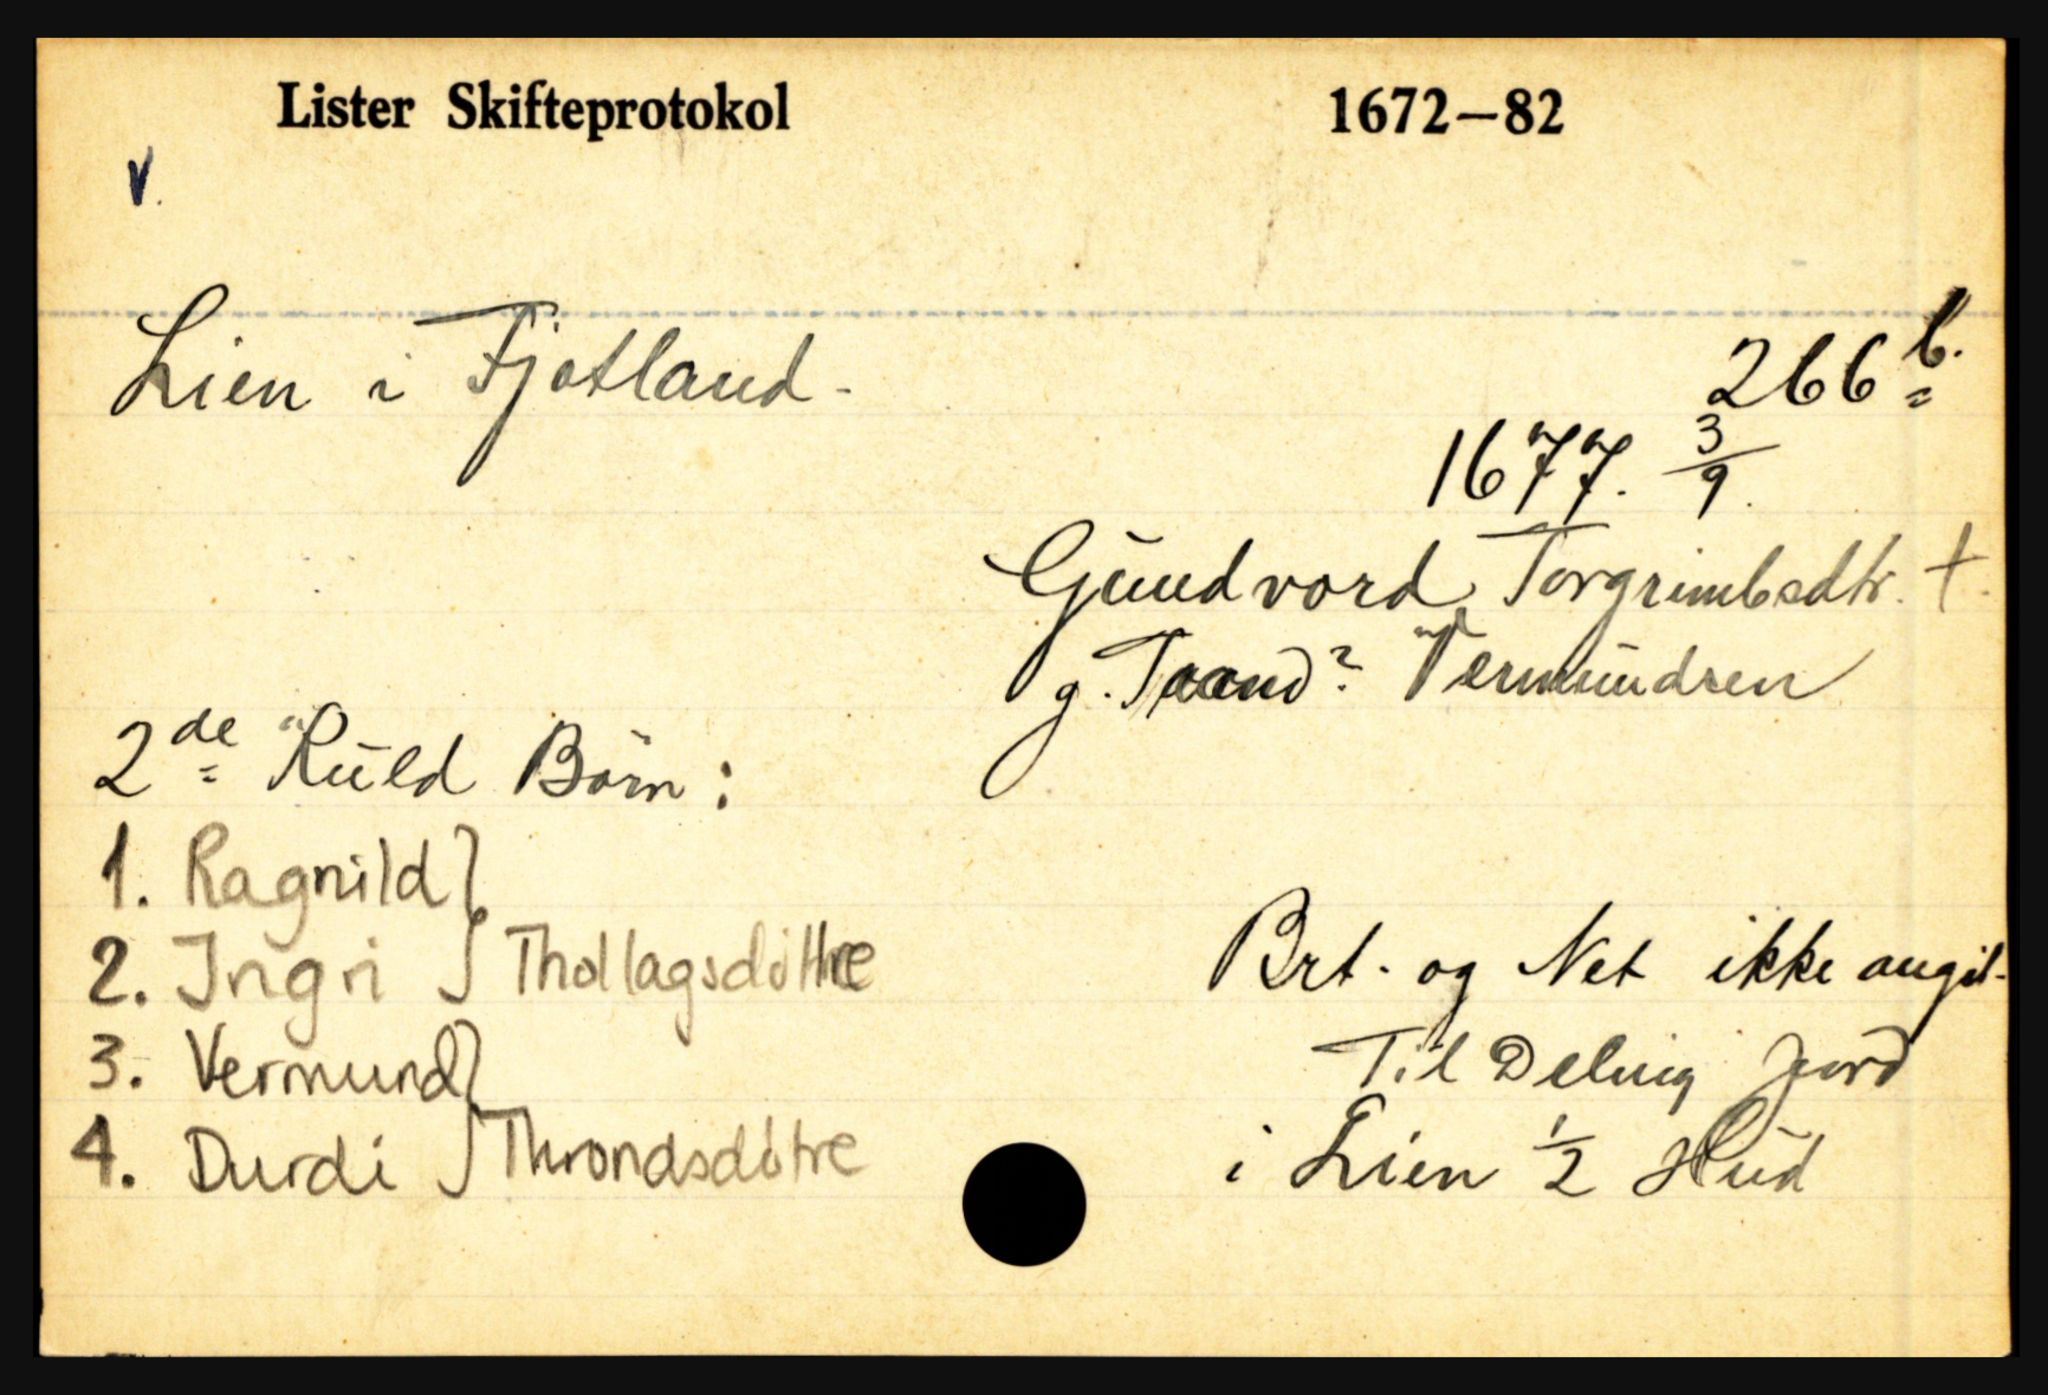 Lister Skifteprotokol 1672—82
v.
Lien i Fjotland - 266 b.
1677. 3/9.
Gundvord Torgrimbsdtr. †.
g. Traand? Vermundsen
2de Kuld Börn :
1. Ragnild }
2. Ingri } Thollagsdøttre
3. Vermund }
4. Durdi } Throndsdøtre
Brt. og Net ikke angit.
Til Deling Jord
i Lien 1/2 Hud